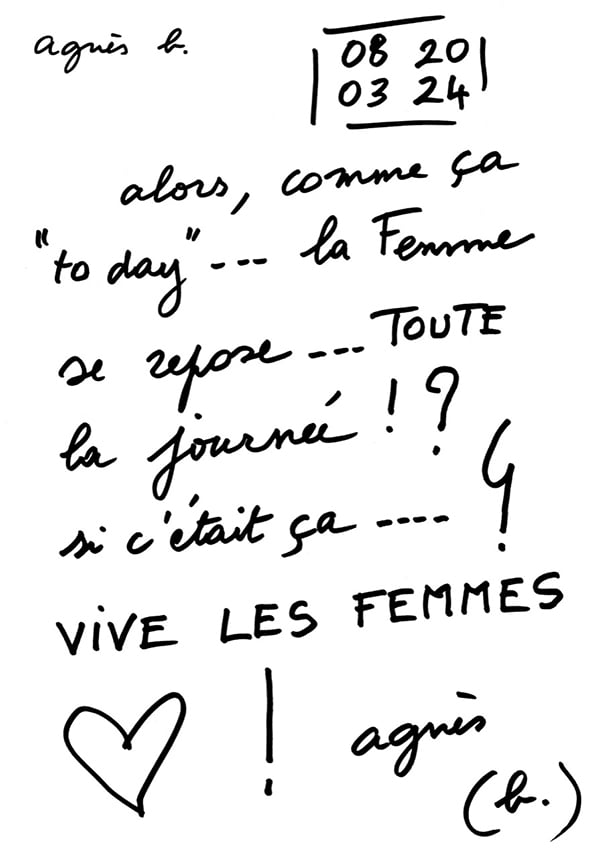 agnès b.
08 20
03 24
alors, comme ça
"to day" --- la Femme
se repose --- TOUTE
la journée ! ?
si c'était ça ---- ?
ViVE LES FEMMES
! agnès
(b.)